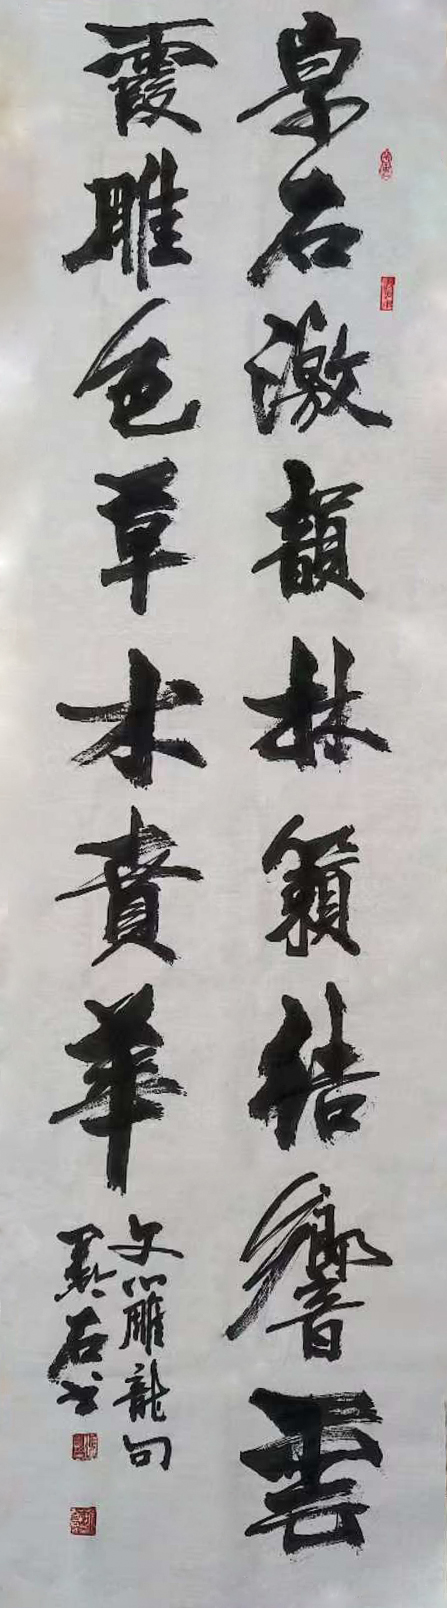 泉石激韻林籟結響雲
霞雕色草木賁華
文心雕龍句
石书